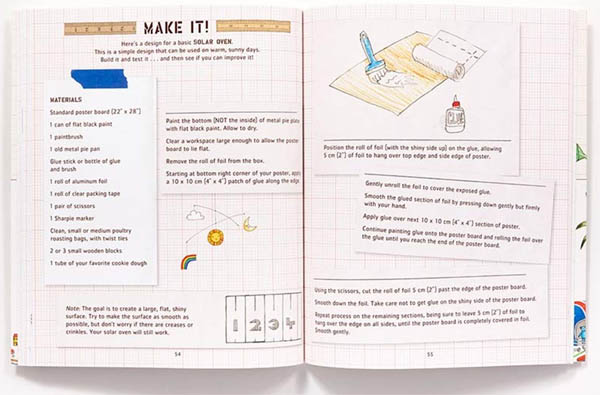 MAKE IT!
Here's a design for a basic SOLAR OVEN.
This is a simple design that can be used on warm, sunny days.
Build it and test it . . . and then see if you can improve it!
MATERIALS
Standard poster board (22" x 28")
1 can of flat black paint
1 paintbrush
1 old metal pie pan
Glue stick or bottle of glue
and brush
1 roll of aluminum foil
1 roll of clear packing tape
1 pair of scissors
1 Sharpie marker
Clean, small or medium poultry
roasting bags, with twist ties
2 or 3 small wooden blocks
1 tube of your favorite cookie dough
Paint the bottom (NOT the inside) of metal pie plate
with flat black paint. Allow to dry.
Clear a workspace large enough to allow the poster
board to lie flat.
Remove the roll of foil from the box.
Starting at bottom right corner of your poster, apply
a 10 x 10 cm (4" x 4") patch of glue along the edge.
Note: The goal is to create a large, flat, shiny
surface. Try to make the surface as smooth as
possible, but don't worry if there are creases or
crinkles. Your solar oven will still work.
1 2 3 4
54
GLUE
Position the roll of foil (with the shiny side up) on the glue, allowing
5 cm (2") of foil to hang over top edge and side edge of poster.
Gently unroll the foil to cover the exposed glue.
Smooth the glued section of foil by pressing down gently but firmly
with your hand.
Apply glue over next 10 x 10 cm (4" x 4") section of poster.
Continue painting glue onto the poster board and rolling the foil over
the glue until you reach the end of the poster board.
Using the scissors, cut the roll of foil 5 cm (2") past the edge of the poster board.
Smooth down the foil. Take care not to get glue on the shiny side of the poster board.
Repeat process on the remaining sections, being sure to leave 5 cm (2") of foil to
hang over the edge on all sides, until the poster board is completely covered in foil.
Smooth gently.
55